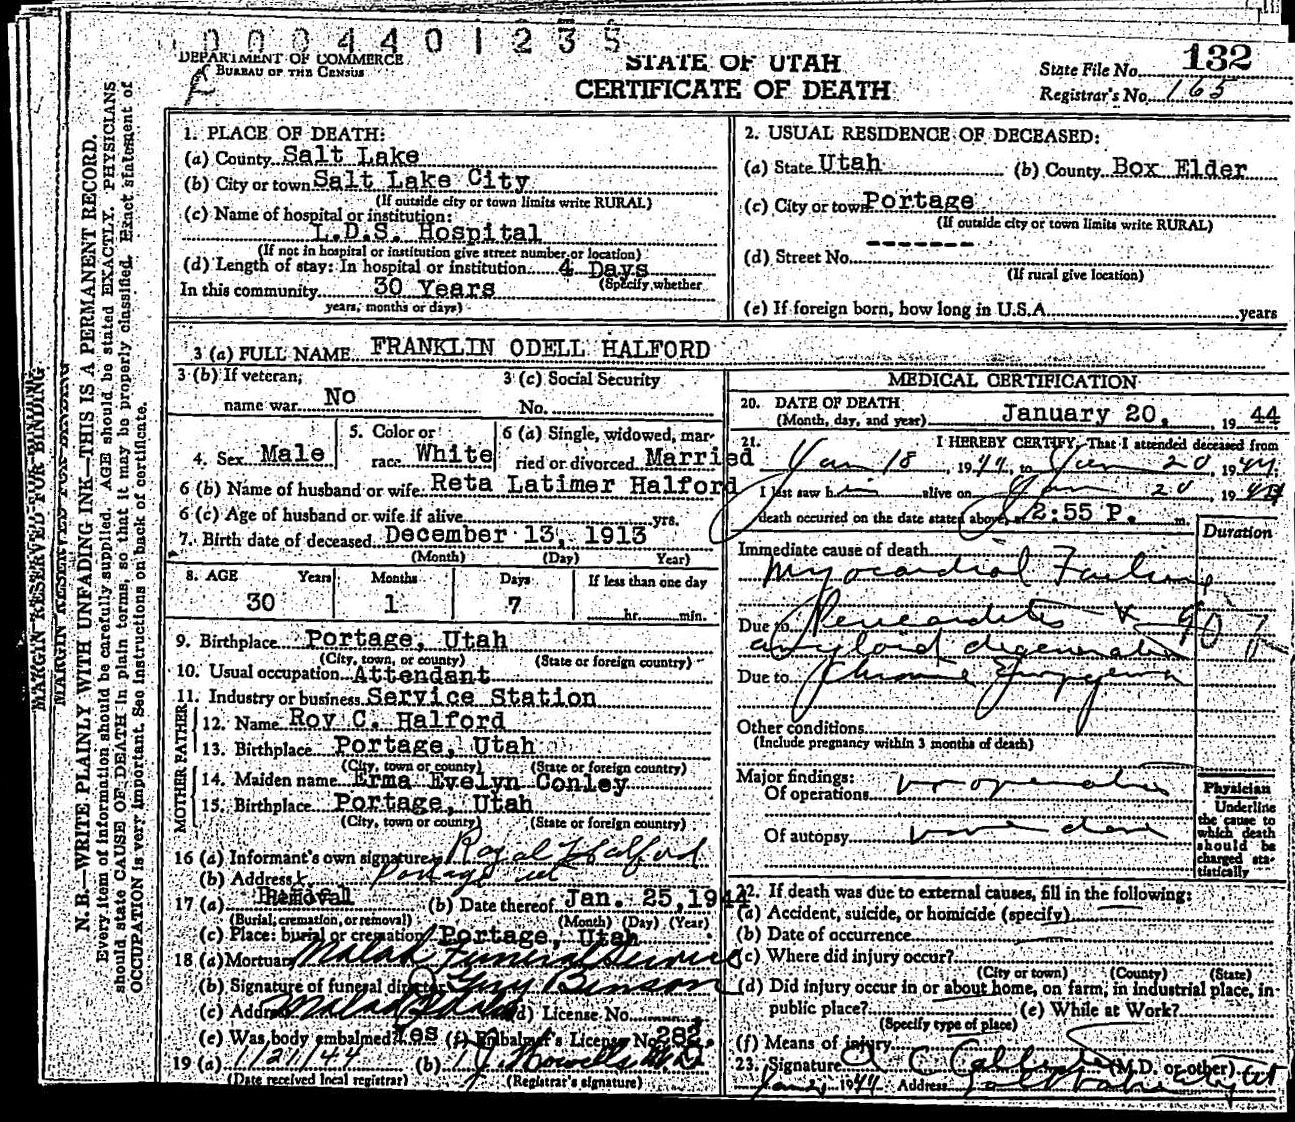 0004401235
DEPARTMENT OF COMMERCE
BUREAU OF THE CENSUS
STATE OF UTAH
CERTIFICATE OF DEATH
State File No. 132
Registrar's No. 165
MARGIN RESERVED FOR BINDING
MARGIN RESERVED FOR BINDING
N. B.—WRITE PLAINLY WITH UNFADING INK—THIS IS A PERMANENT RECORD.
Every item of information should be carefully supplied. AGE should be stated EXACTLY. PHYSICIANS
should state CAUSE OF DEATH in plain terms, so that it may be properly classified. Exact statement of
OCCUPATION is very important. See instructions on back of certificate.
1. PLACE OF DEATH:
(a) County Salt Lake
(b) City or town Salt Lake City
(If outside city or town limits write RURAL)
(c) Name of hospital or institution:
L.D.S. Hospital
(If not in hospital or institution give street number or location)
(d) Length of stay: In hospital or institution 4 Days
(Specify whether
In this community 30 Years
years, months or days)
2. USUAL RESIDENCE OF DECEASED:
(a) State Utah (b) County Box Elder
(c) City or town Portage
(If outside city or town limits write RURAL)
(d) Street No. -------
(If rural give location)
(e) If foreign born, how long in U.S.A. years
3 (a) FULL NAME FRANKLIN ODELL HALFORD
3 (b) If veteran,
name war No
3 (c) Social Security
No.
4. Sex Male
5. Color or
race White
6 (a) Single, widowed, mar-
ried or divorced Married
6 (b) Name of husband or wife Reta Latimer Halford
6 (c) Age of husband or wife if alive yrs.
7. Birth date of deceased December 13, 1913
(Month) (Day) Year)
8. AGE Years Months Days If less than one day
30 1 7 hr. min.
9. Birthplace Portage, Utah
(City, town, or county) (State or foreign country)
10. Usual occupation Attendant
11. Industry or business Service Station
FATHER
12. Name Roy C. Halford
13. Birthplace Portage, Utah
(City, town or county) (State or foreign country)
MOTHER
14. Maiden name Erma Evelyn Conley
15. Birthplace Portage, Utah
(City, town or county) (State or foreign country)
16 (a) Informant's own signature Halford
(b) Address Portage Ut
17 (a) Removal (b) Date thereof Jan. 25, 1944
(Burial, cremation, or removal) (Month) (Day) (Year)
(c) Place: burial or cremation Portage, Utah
18 (a) Mortuary Malad Funeral Service
(b) Signature of funeral director Benson
(c) Address Malad Idaho (d) License No.
(e) Was body embalmed? Yes (f) Embalmer's License No. 282
19 (a) 1/21/44 (b) Howells M.D.
(Date received local registrar) (Registrar's signature)
MEDICAL CERTIFICATION
20. DATE OF DEATH
(Month, day, and year) January 20, 19 44
21. I HEREBY CERTIFY, That I attended deceased from
Jan 18, 1944, to Jan 20, 1944
I last saw him alive on Jan 20, 1944
death occurred on the date stated above, at 2:55 P. m.
Duration
Immediate cause of death
Myocardial Failure
Due to Pericarditis &
amyloid degeneration
Due to Chronic Empyema
Other conditions
(Include pregnancy within 3 months of death)
Major findings:
Of operations no operation
Of autopsy none done
Physician
Underline
the cause to
which death
should be
charged sta-
tistically
22. If death was due to external causes, fill in the following:
(a) Accident, suicide, or homicide (specify)
(b) Date of occurrence
(c) Where did injury occur?
(City or town) (County) (State)
(d) Did injury occur in or about home, on farm, in industrial place, in
public place? (e) While at Work?
(Specify type of place)
(f) Means of injury
23. Signature (M.D. or other)
1944 Address Salt Lake City Ut